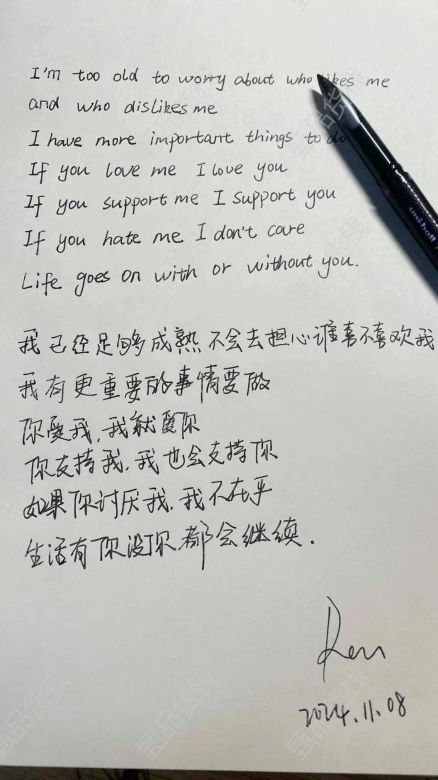 I'm too old to worry about who likes me
and who dislikes me
I have more important things to do
If you love me I love you
If you support me I support you
If you hate me I don't care
Life goes on with or without you.
我已经足够成熟 不会去担心谁喜不喜欢我
我有更重要的事情要做
你爱我,我就爱你
你支持我,我也会支持你
如果你讨厌我,我不在乎
生活有你没你都会继续.
2024.11.08